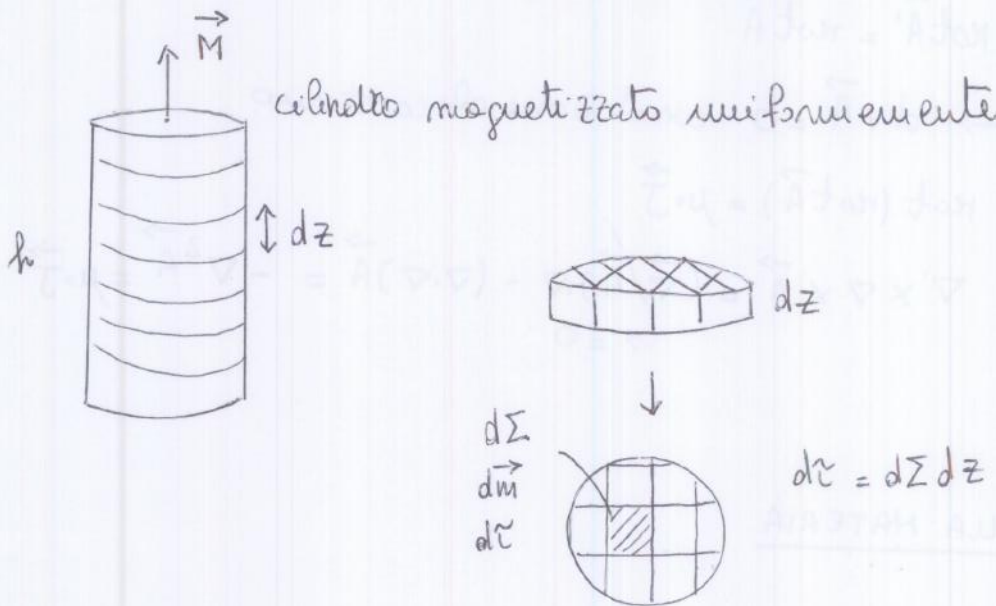 M⃗
cilindro magnetizzato uniformemente
h
dz
dz
dΣ
dm⃗
dτ
dτ = dΣ dz